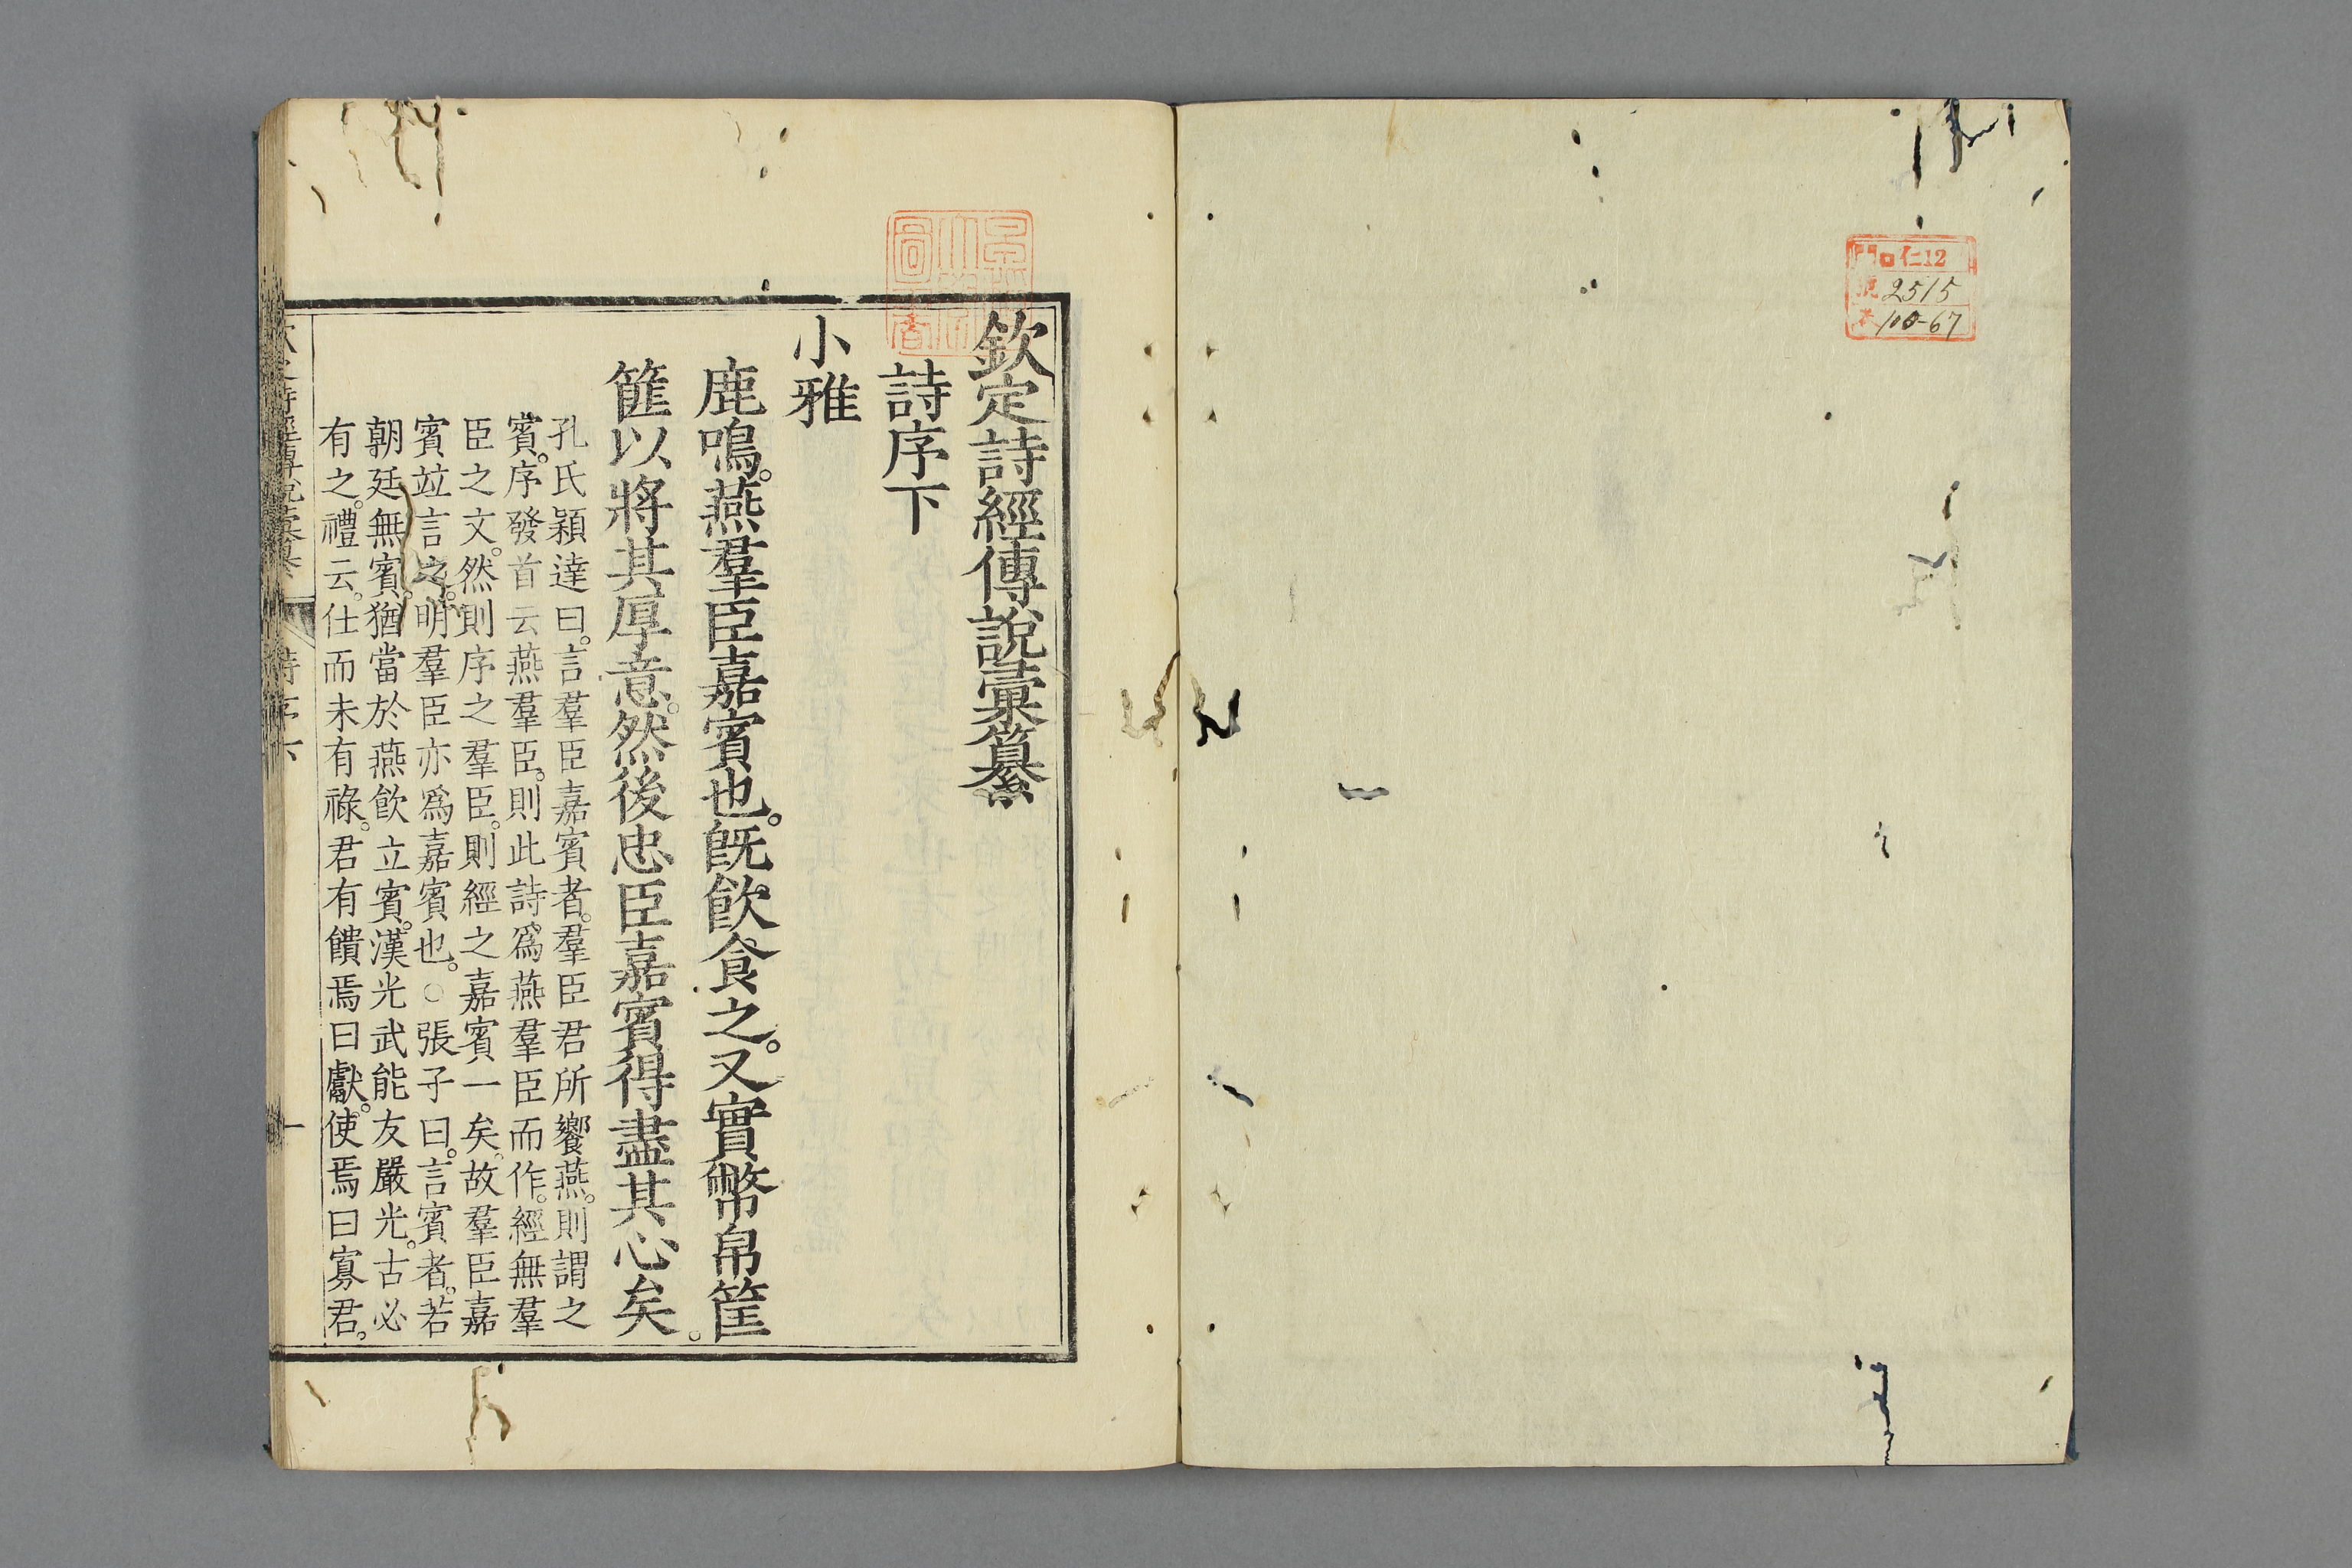 仁12
2515
100-67
欽定詩經傳說彙纂
詩序下
小雅
鹿鳴。燕羣臣嘉賓也。旣飮食之。又實幣帛筐
篚以將其厚意。然後忠臣嘉賓得盡其心矣。
孔氏穎達曰。言羣臣嘉賓者。羣臣君所饗燕。則謂之
賓。序發首云燕羣臣。則此詩爲燕羣臣而作。經無羣
臣之文。然則序之羣臣。則經之嘉賓一矣。故羣臣嘉
賓竝言之。明羣臣亦爲嘉賓也。○張子曰。言賓者。若
朝廷無賓。猶當於燕飮立賓。漢光武能友嚴光。古必
有之。禮云。仕而未有祿。君有饋焉曰獻。使焉曰寡君。
詩序六 一